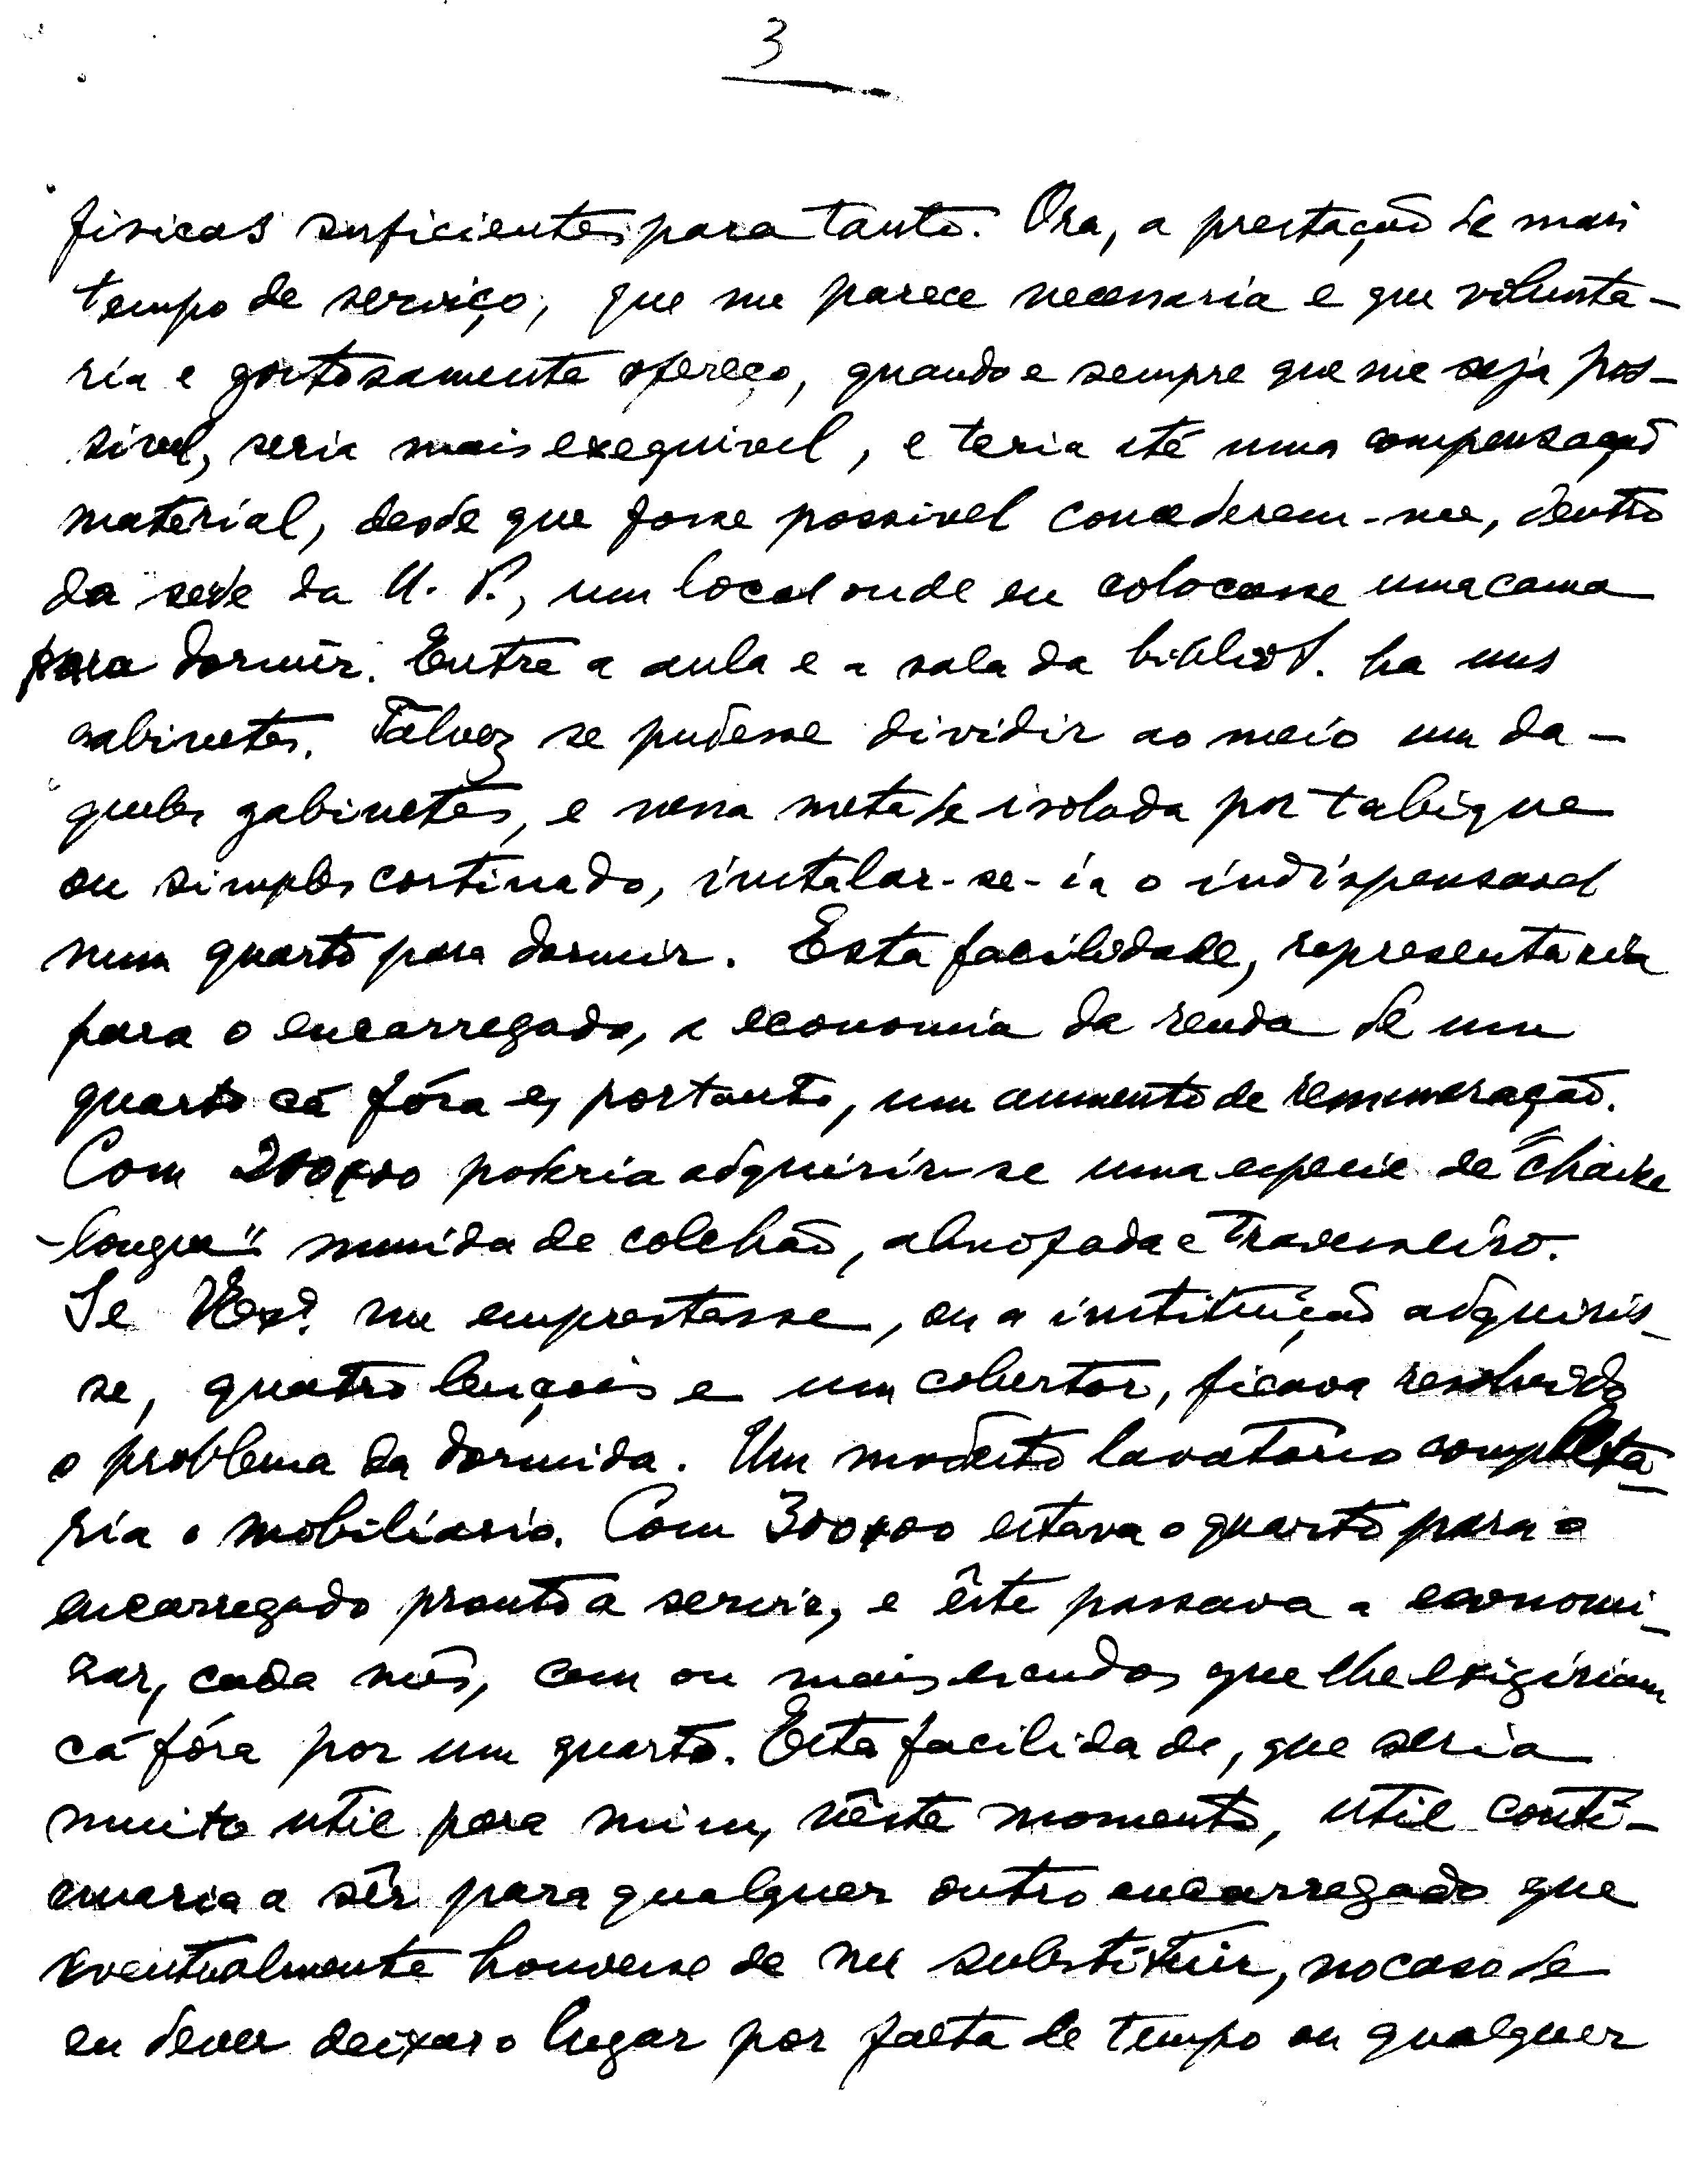 3
fisicas suficientes para tanto. Ora, a prestação de mais
tempo de serviço, que me parece necessaria e que volunta-
ria e gostosamente ofereço, quando e sempre que me seja pos-
sivel, seria mais exequivel, e teria até uma compensação
material, desde que fosse possivel concederem-me, dentro
da sede da U. P., um local onde eu colocasse uma cama
para dormir. Entre a aula e a sala da bibliot. ha uns
gabinetes. Talvez se pudesse dividir ao meio um da-
queles gabinetes, e nessa metade isolada por tabique
ou simples cortinado, instalar-se-ia o indispensavel
num quarto para dormir. Esta facilidade, representaria
para o encarregado, a economia da renda de um
quarto cá fóra e, portanto, um aumento de remuneração.
Com 200$00 poderia adquirir-se uma especie de "chaise
-longue" munida de colchão, almofada e travesseiro.
Se V.Exª. me emprestasse, ou a instituição adquiris-
se, quatro lençois e um cobertor, ficava resolvido
o problema da dormida. Um modesto lavatorio completa-
ria o mobiliario. Com 300$00 estava o quarto para o
encarregado pronto a servir, e êste passava a economi-
zar, cada mês, cem ou mais escudos que lhe exigiriam
cá fóra por um quarto. Esta facilidade, que seria
muito util para mim, nêste momento, util conti-
nuaria a sêr para qualquer outro encarregado que
eventualmente houvesse de me substituir, no caso de
eu dever deixar o lugar por falta de tempo ou qualquer